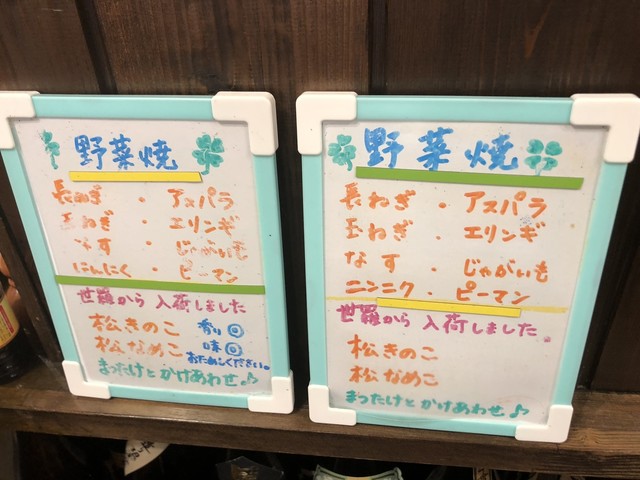 野菜焼
長ねぎ ・ アスパラ
玉ねぎ ・ エリンギ
なす ・ じゃがいも
にんにく ・ ピーマン
世羅から 入荷しました
松きのこ 香り◎
松なめこ 味◎
おためしください。
まつたけとかけあわせ♪
野菜焼
長ねぎ ・ アスパラ
玉ねぎ ・ エリンギ
なす ・ じゃがいも
ニンニク ・ ピーマン
世羅から 入荷しました。
松きのこ
松なめこ
まつたけとかけあわせ♪